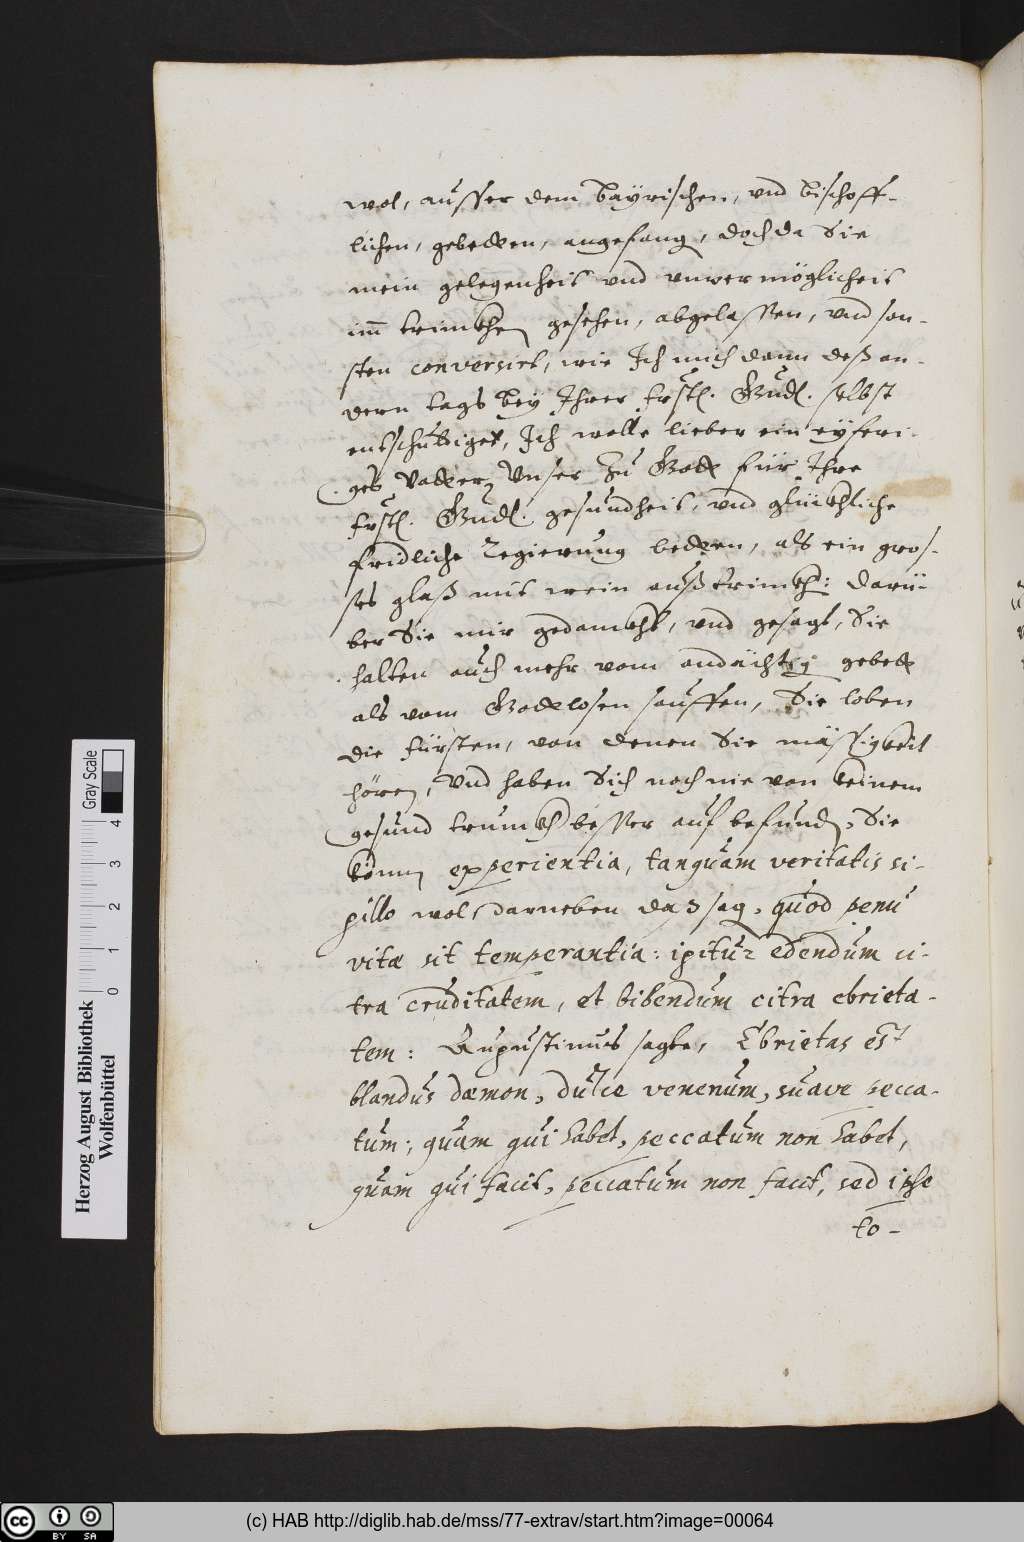 wol, ausser dem Bayrischen, vnd Bischoff-
lichen, gebetten, angefang, doch da Sie
mein gelegenheit vnd vnvermöglicheit
im trinckhen gesehen, abgelassen, vnd son-
sten conversirt, wie Ich mich dann deß an-
dern tags bey Ihrer frstl. Gndl. selbst
entschuldiget, Ich wolle lieber ein eyferi-
ges Vatter Vnser zu Gott für Ihre
frstl. Gndl. gesundheit, vnd glückhliche
fridliche Regierung betten, als ein gros-
ses glaß mit wein außtrinckh: Darü-
ber Sie mir gedanckht, vnd gesagt, Sie
halten auch mehr vom andächtig gebett
als vom Gottlosen sauffen, Sie loben
die fürsten, von denen Sie mässigkeit
hören, vnd haben Sich noch nie von keinem
gesund trunckh besser auf befunden, Sie
können experientia, tanquam veritatis si-
gillo wol darneben das sag, quod penu
vitæ sit temperantia: igitur edendum ci-
tra cruditatem, et bibendum citra ebrieta-
tem: Augustinus sagte, Ebrietas est
blandus dæmon, dulce venenum, suave pecca-
tum; quam qui habet, peccatum non habet,
quam qui facit, peccatum non facit, sed ipse
to-
Herzog August Bibliothek
Wolfenbüttel
0 1 2 3 4
Gray Scale
cc BY SA
(c) HAB http://diglib.hab.de/mss/77-extrav/start.htm?image=00064